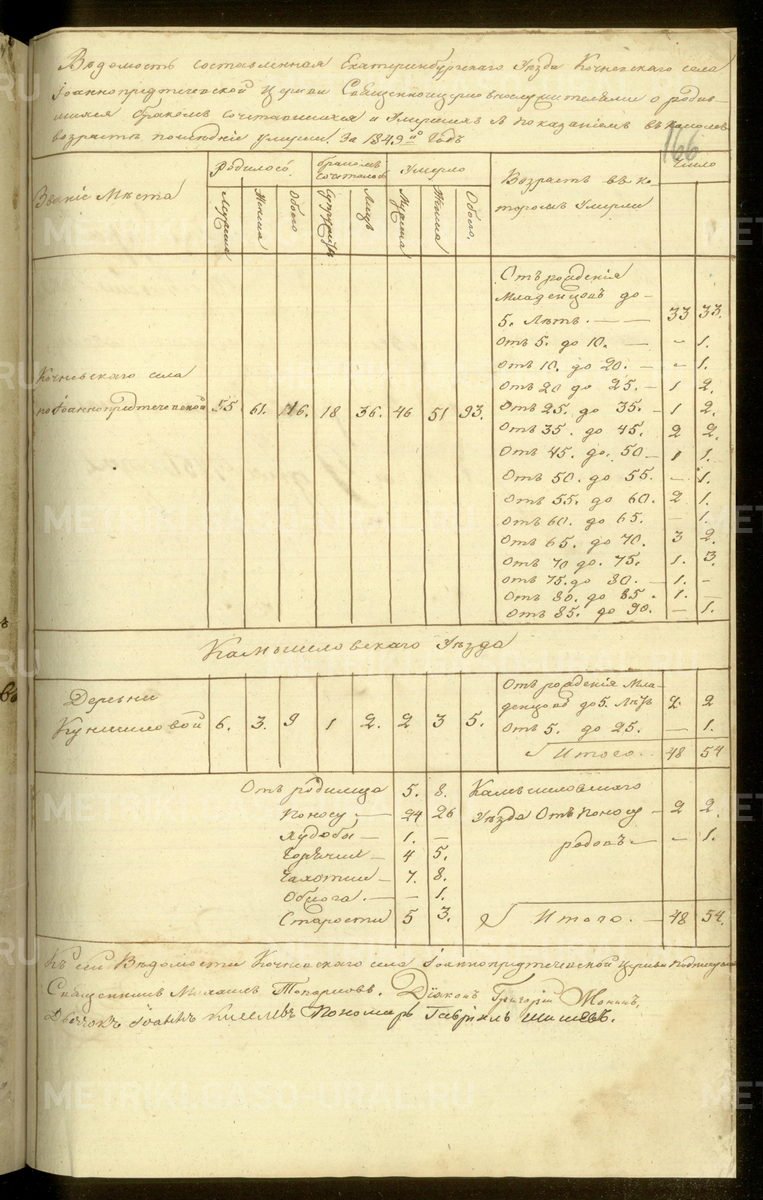 Вѣдомость составленная Екатеринбургскаго Уѣзда Кочневскаго села
Іоаннопредтечевской Церкви Священноцерковнослужителями о родив-
шихся бракомъ сочетавшихся и Умершихъ съ показаніемъ въ какомъ
возрастѣ послѣдніе умерли. За 1849й Годъ
166
Званіе Мѣста
Родилось
бракомъ сочеталось
Умерло
Возрастъ въ ко-
торомъ Умерли
Число
Мужеска Женска Обоего Супружествъ Лицъ Мужеска Женска Обоего
Кочневскаго села
по Іоаннопредтечевской 55. 61. 116. 18 36. 46 51 93.
Отъ рожденія
Младенцовъ до
5. Лѣтъ. — — 33 33.
Отъ 5. до 10. — – 1.
Отъ 10. до 20. — – 1.
Отъ 20 до 25. — 1 2.
Отъ 25. до 35. — 1 2.
Отъ 35. до 45. 2 2.
Отъ 45. до. 50 — 1 1.
Отъ 50. до 55. — 1.
Отъ 55. до 60. 2 1.
Отъ 60. до 65. — 1.
Отъ 65. до 70. 3 2.
Отъ 70 до. 75. 1. 3.
Отъ 75. до 80. — 1. –
Отъ 80. до 85. 1. —
Отъ 85. до 90. — 1.
Камышловскаго Уѣзда
Деревни
6. 3. 9 1 2. 2 3 5.
Отъ рожденія Мла-
денцовъ до 5. Лѣтъ 2. 2
Отъ 5. до 25. — 1.
Итого. 48 54
Отъ родимца 5. 8.
Поносу — 24 26
Худобы — 1. —
Горячки — 4 5.
Чахотки — 7. 8.
— 1.
Старости 5 3.
Камышловскаго
Уѣзда Отъ Поносу — 2 2.
родовъ — – 1.
Итого. — 48 54.
Къ сей Вѣдомости Кочневскаго села Іоаннопредтечевской Церкви
Священникъ Михаилъ Діаконъ Григорій
Дьячокъ Іоаннъ Пономарь Гавриилъ
METRIKI.GASO-URAL.RU